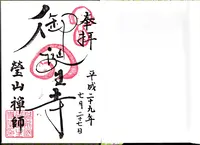 奉拝
平成二十九年
七月二七日
御誕生寺
瑩山禅師